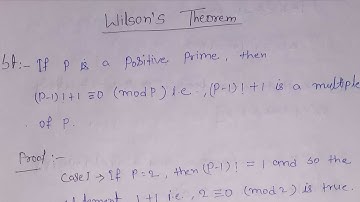 Wilson's Theorem
St:- If P is a Positive Prime, then
(P-1)!+1≡0 (mod P) i.e., (P-1)!+1 is a multiple
of P.
Proof:-
Case I → If P=2, then (P-1)! = 1 and so the
1+1 i.e., 2≡0 (mod 2) is true.